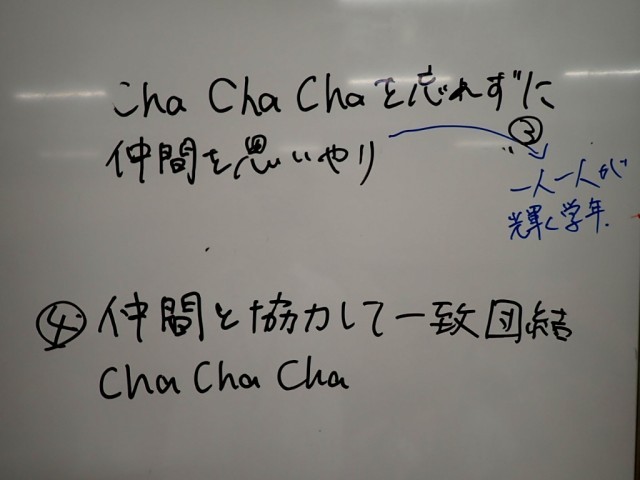 Cha Cha Chaを忘れずに
仲間を思いやり
③
一人一人が
輝く学年.
④仲間と協力して一致団結
Cha Cha Cha